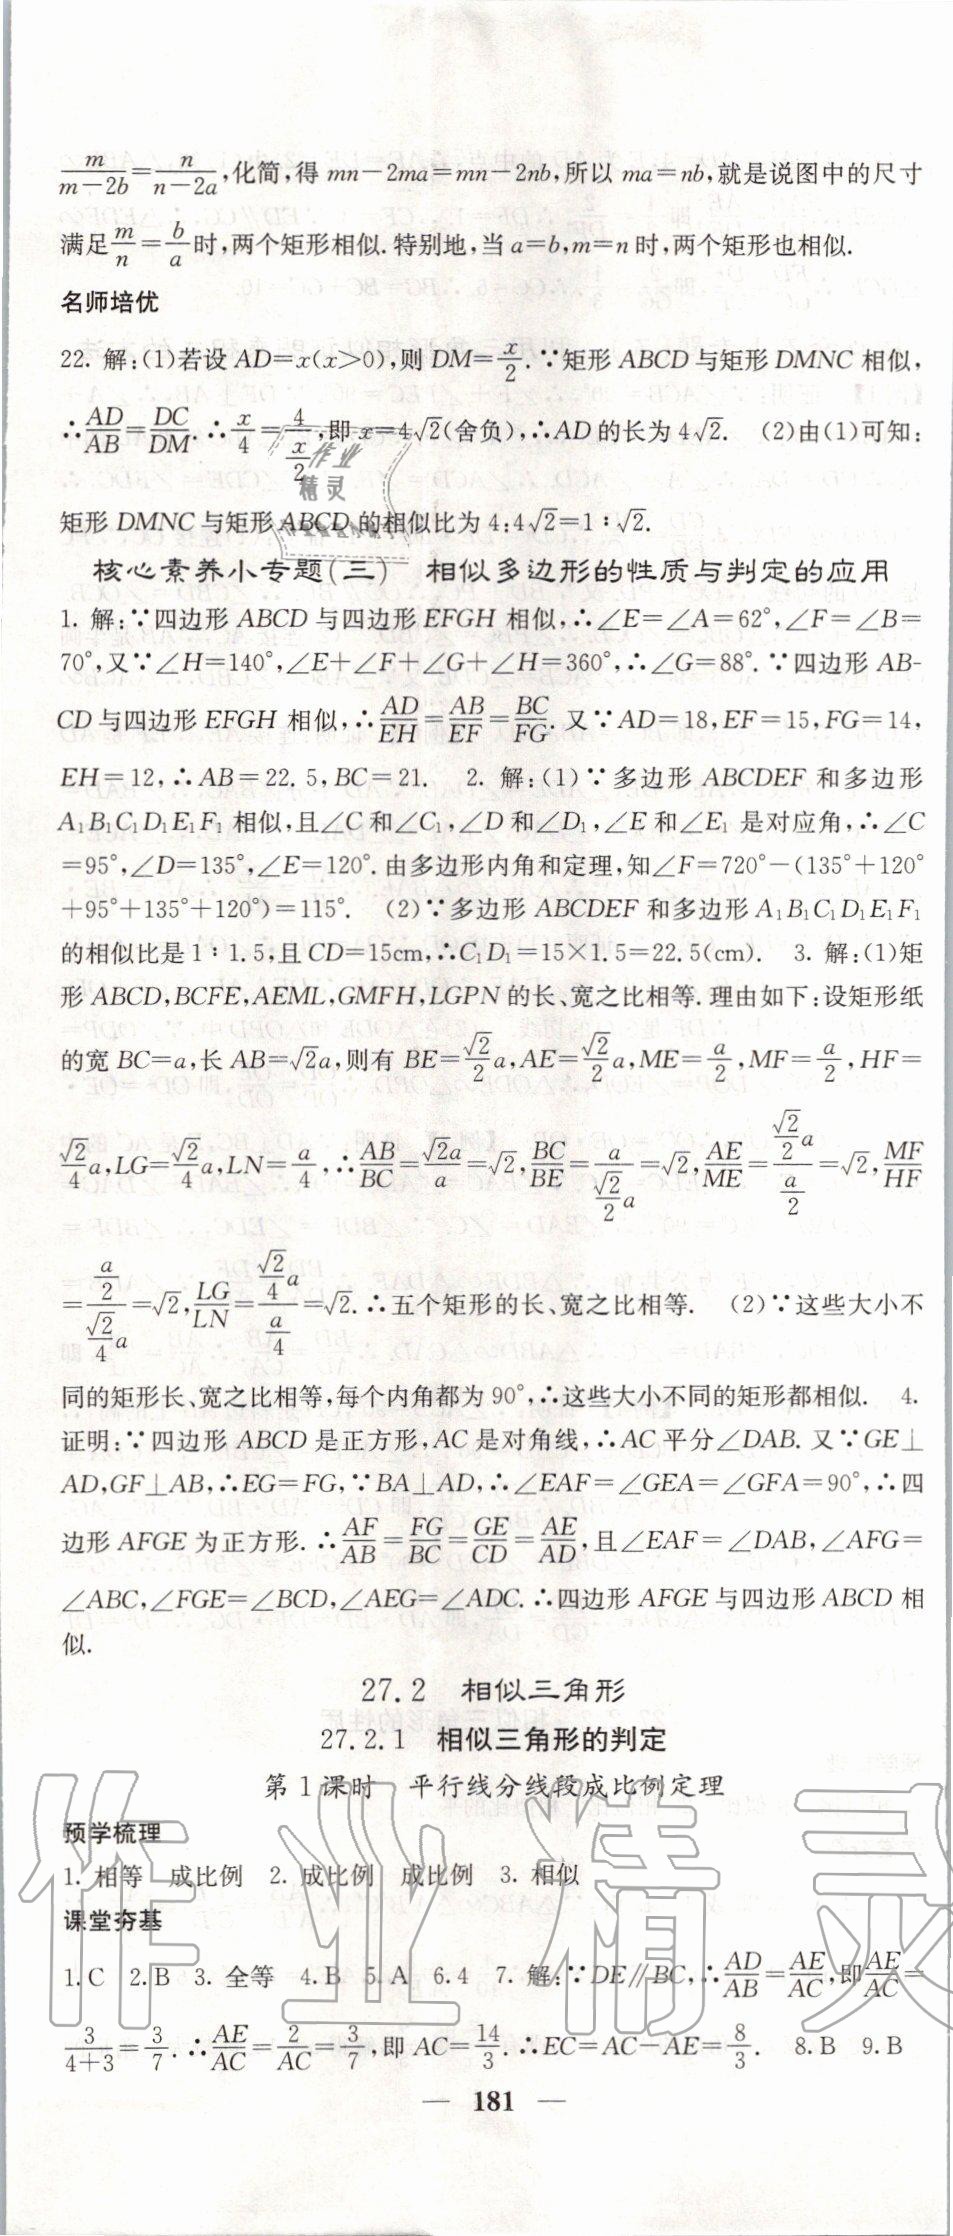 m/(m−2b)=n/(n−2a),化简,得 mn−2ma=mn−2nb,所以 ma=nb,就是说图中的尺寸
满足m/n=b/a时,两个矩形相似.特别地,当 a=b,m=n 时,两个矩形也相似.
名师培优
22. 解:(1)若设 AD=x(x>0),则 DM=x/2.∵矩形 ABCD 与矩形 DMNC 相似,
∴AD/AB=DC/DM.∴x/4=4/(x/2),即 x=4√2(舍负),∴AD 的长为 4√2. (2)由(1)可知:
作业
精灵
矩形 DMNC 与矩形 ABCD 的相似比为 4:4√2=1∶√2.
核心素养小专题(三) 相似多边形的性质与判定的应用
1. 解:∵四边形 ABCD 与四边形 EFGH 相似,∴∠E=∠A=62°,∠F=∠B=
70°,又∵∠H=140°,∠E+∠F+∠G+∠H=360°,∴∠G=88°.∵四边形 AB-
CD 与四边形 EFGH 相似,∴AD/EH=AB/EF=BC/FG.又∵AD=18,EF=15,FG=14,
EH=12,∴AB=22.5,BC=21. 2. 解:(1)∵多边形 ABCDEF 和多边形
A₁B₁C₁D₁E₁F₁ 相似,且∠C 和∠C₁,∠D 和∠D₁,∠E 和∠E₁ 是对应角,∴∠C
=95°,∠D=135°,∠E=120°.由多边形内角和定理,知∠F=720°−(135°+120°
+95°+135°+120°)=115°. (2)∵多边形 ABCDEF 和多边形 A₁B₁C₁D₁E₁F₁
的相似比是 1∶1.5,且 CD=15cm,∴C₁D₁=15×1.5=22.5(cm). 3. 解:(1)矩
形 ABCD,BCFE,AEML,GMFH,LGPN 的长、宽之比相等.理由如下:设矩形纸
的宽 BC=a,长 AB=√2a,则有 BE=√2/2 a,AE=√2/2 a,ME=a/2,MF=a/2,HF=
√2/4 a,LG=√2/4 a,LN=a/4,∴AB/BC=√2a/a=√2,BC/BE=a/(√2/2 a)=√2,AE/ME=(√2/2 a)/(a/2)=√2,MF/HF
=(a/2)/(√2/4 a)=√2,LG/LN=(√2/4 a)/(a/4)=√2.∴五个矩形的长、宽之比相等. (2)∵这些大小不
同的矩形长、宽之比相等,每个内角都为 90°,∴这些大小不同的矩形都相似. 4.
证明:∵四边形 ABCD 是正方形,AC 是对角线,∴AC 平分∠DAB. 又∵GE⊥
AD,GF⊥AB,∴EG=FG,∵BA⊥AD,∴∠EAF=∠GEA=∠GFA=90°,∴四
边形 AFGE 为正方形.∴AF/AB=FG/BC=GE/CD=AE/AD,且∠EAF=∠DAB,∠AFG=
∠ABC,∠FGE=∠BCD,∠AEG=∠ADC.∴四边形 AFGE 与四边形 ABCD 相
似.
27.2 相似三角形
27.2.1 相似三角形的判定
第 1 课时 平行线分线段成比例定理
预学梳理
1. 相等 成比例 2. 成比例 成比例 3. 相似
课堂夯基
1.C 2.B 3. 全等 4.B 5.A 6.4 7. 解:∵DE∥BC,∴AD/AB=AE/AC,即AE/AC=
3/(4+3)=3/7.∴AE/AC=2/AC=3/7,即 AC=14/3.∴EC=AC−AE=8/3. 8.B 9.B
— 181 —
作业精灵